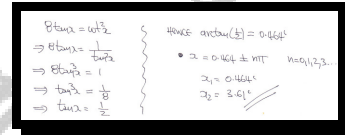 8tanx = cot²x
⇒ 8tanx = 1/tan²x
⇒ 8tan³x = 1
⇒ tan³x = 1/8
⇒ tanx = 1/2
HENCE arctan(1/2) = 0.464ᶜ
• x = 0.464 ± nπ n=0,1,2,3...
x₁ = 0.464ᶜ
x₂ = 3.61ᶜ